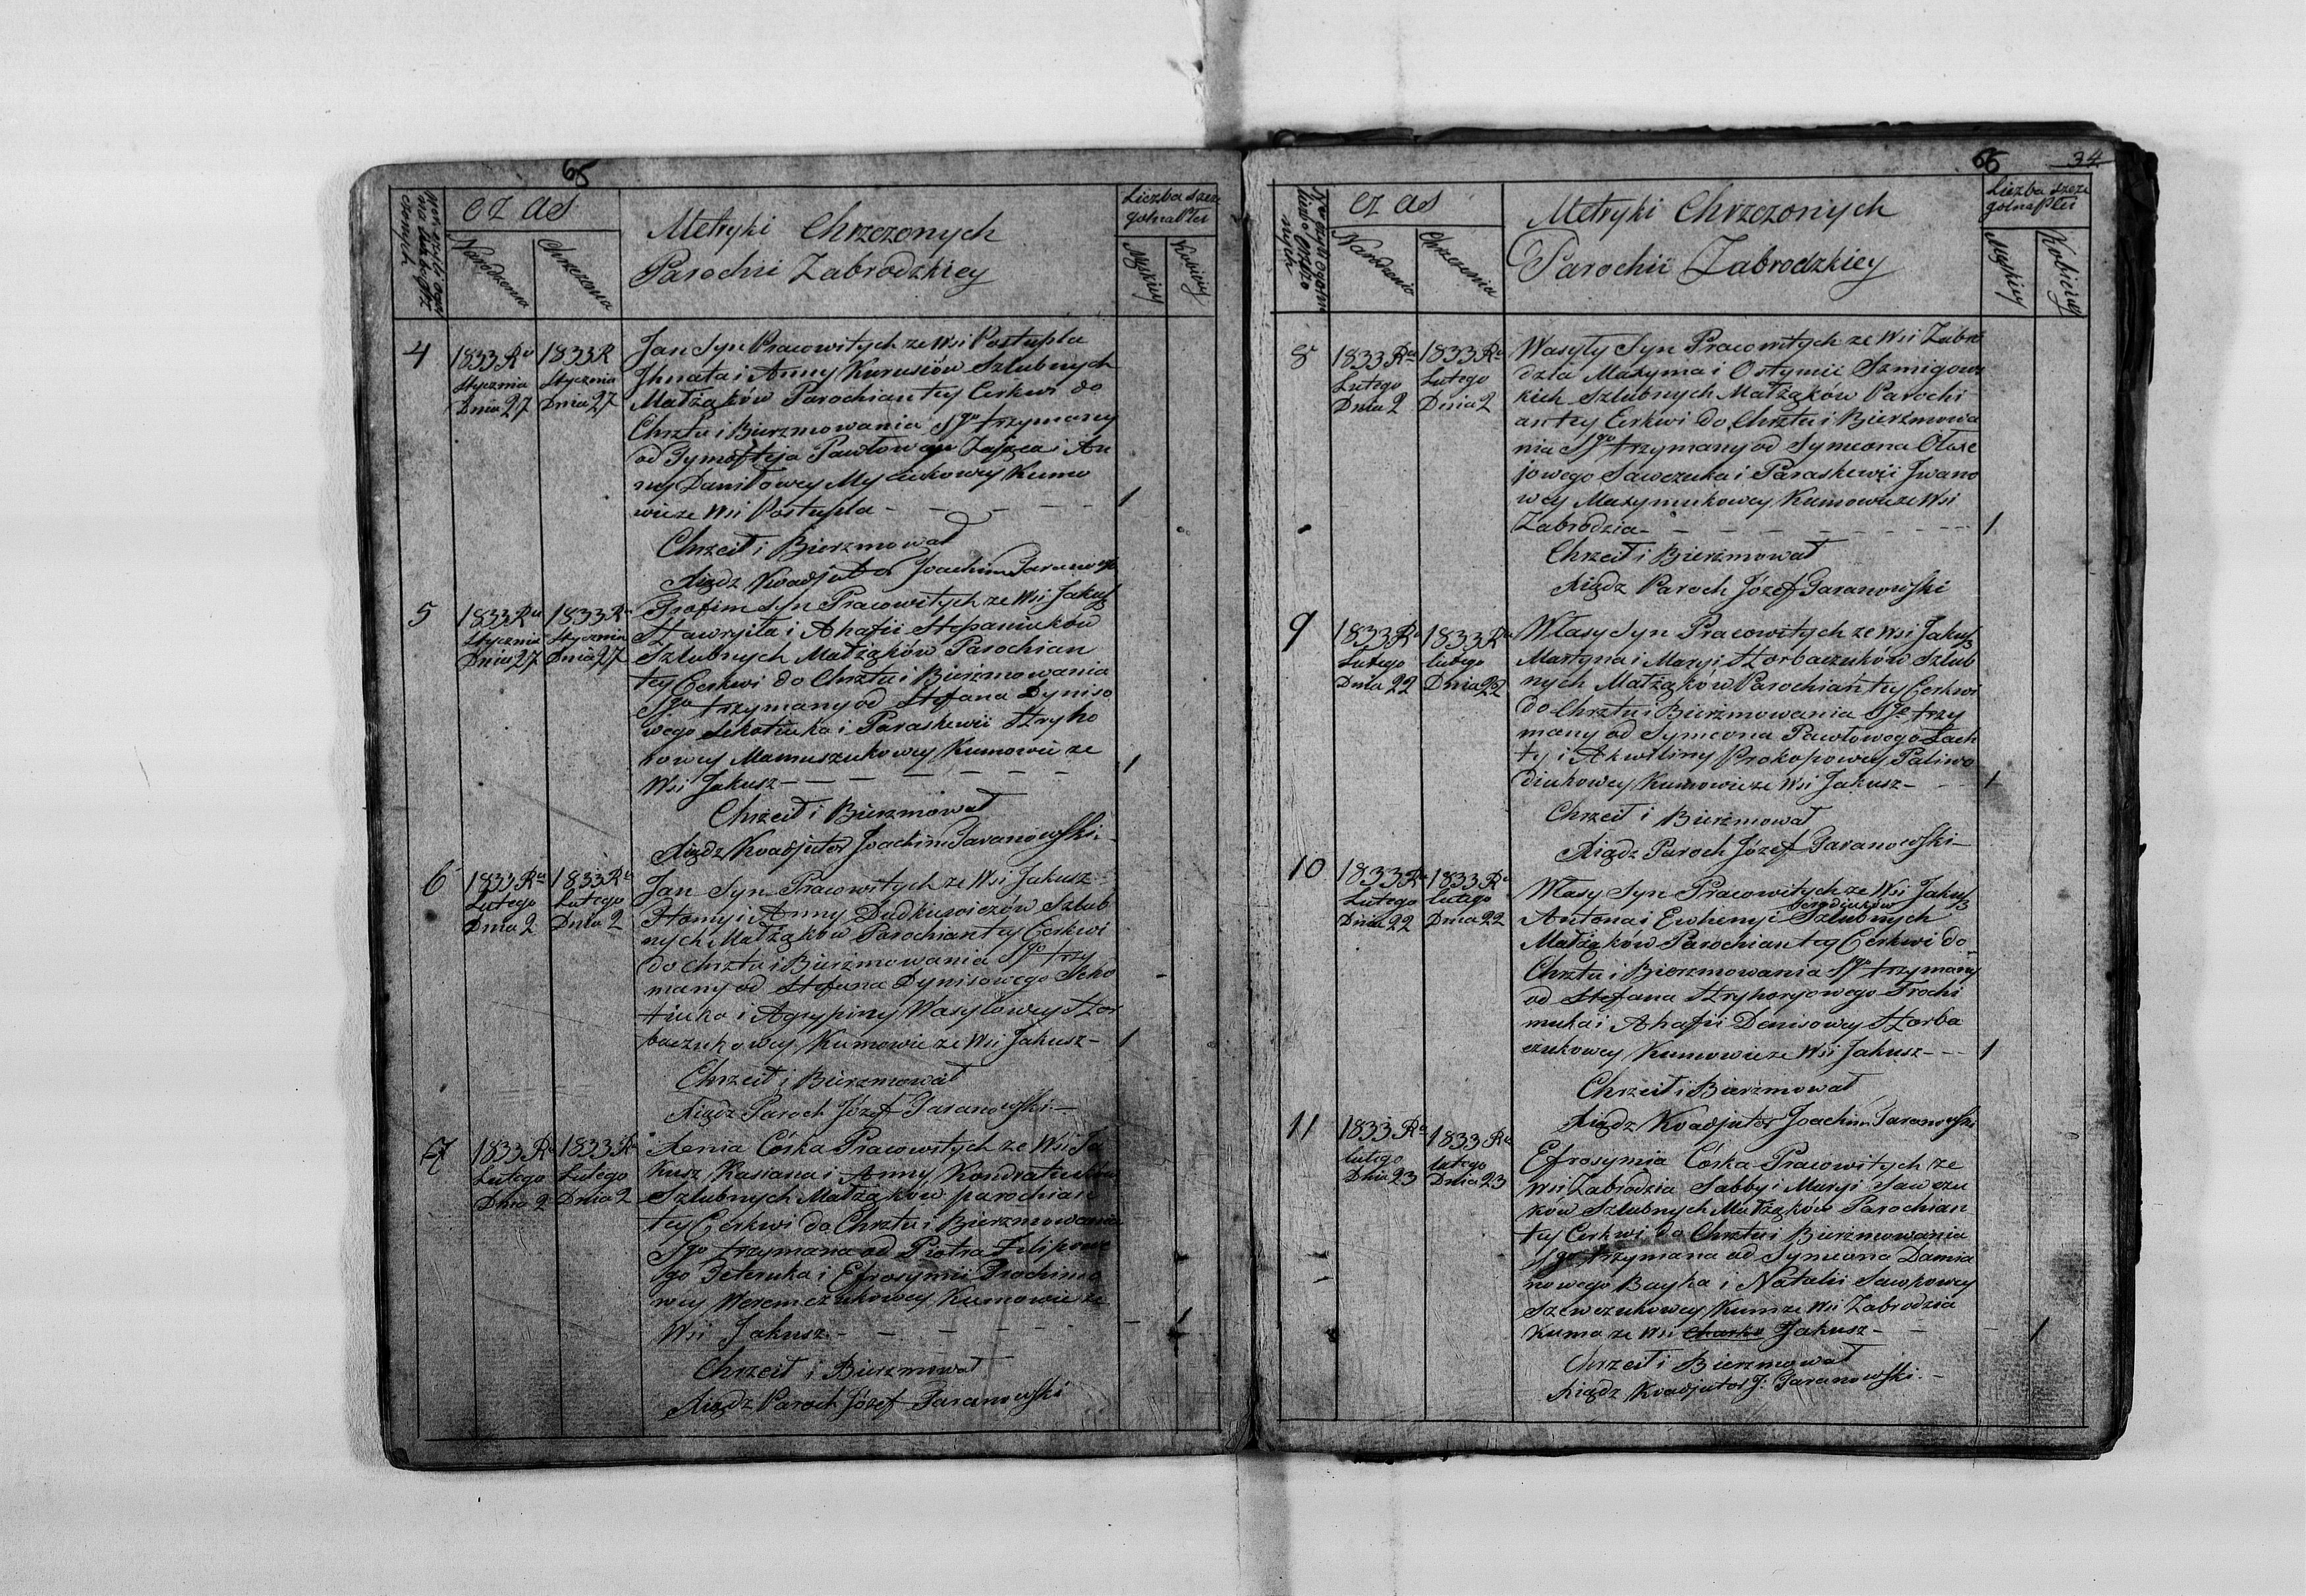 65
czas
Metryki Chrzczonych
Parochii Zabrodzkiey
Liczba szcze
gólna Płci
Narodzenia
Chrzczenia
Męskiey
Kobiecey
4
1833 Ru
Stycznia
Dnia 27
1833 R
Stycznia
Dnia 27
Jan Syn Pracowitych ze Wsi Postupla
Jhnata i Anny Kurusiów Szlubnych
Małżąków Parochian tey Cerkwi do
Chrztu i Bierzmowania Sgo trzymany
od Tymofteja Pawłowego Zająca i An
ny Daniłowey Kumo
wie ze Wsi Postupla
1
Chrzcił i Bierzmował
Xiądz Koadjutor Joachim Taranowski
5
1833 Ru
Stycznia
Dnia 27
1833 R
Stycznia
Dnia 27
Trofim Syn Pracowitych ze Wsi Jakusz
Hawryiła i Ahafii Stepaniuków
Szlubnych Małżąków Parochian
tey Cerkwi do Chrztu i Bierzmowania
Sgo trzymany od Stefana Dyniso
wego Sekotiuka i Paraskewii Hryho
rowey Mamuszukowey Kumowie ze
Wsi Jakusz
1
Chrzcił i Bierzmował
Xiądz Koadjutor Joachim Taranowski
6
1833 Ru
Lutego
Dnia 2
1833 Ru
Lutego
Dnia 2
Jan Syn Pracowitych ze Wsi Jakusz
Homy i Anny Dudkiewiczów Szlub
nych Małżąków Parochian tey Cerkwi
do Chrztu i Bierzmowania Sgo trzy
many od Stefana Dynisowego Seko
tiuka i Agrypiny Wasylowey Hor
baczukowey Kumowie ze Wsi Jakusz
1
Chrzcił i Bierzmował
Xiądz Paroch Józef Taranowski
7
1833 R
Lutego
Dnia 2
1833 R
Lutego
Dnia 2
Xenia Córka Pracowitych ze Wsi Ja
kusz Kasiana i Anny Kondratiuków
Szlubnych Małżąków parochian
tey Cerkwi do Chrztu i Bierzmowania
Sgo trzymana od Piotra Filipowe
go Peteruka i Efrosymii Trochimo
wey Weremczukowey Kumowie ze
Wsi Jakusz
1
Chrzcił i Bierzmował
Xiądz Paroch Józef Taranowski
66
34
czas
Metryki Chrzczonych
Parochii Zabrodzkiey
Liczba szcze
gólna Płci
Narodzenia
Chrzczenia
Męskiey
Kobiecey
8
1833 Ru
Lutego
Dnia 2
1833 Ru
Lutego
Dnia 2
Wasyly Syn Pracowitych ze Wsi Zabro
dzia Maxyma i Ostymii Szmigows
kich Szlubnych Małżąków Parochi
an tey Cerkwi do Chrztu i Bierzmowa
nia Sgo trzymany od Symeona Olexe
jowego Sawczuka i Paraskewii Jwano
wey Maxymukowey Kumowie ze Wsi
Zabrodzia
1
Chrzcił i Bierzmował
Xiądz Paroch Józef Taranowski
9
1833 R
Lutego
Dnia 22
1833 Ru
lutego
Dnia 22
Własy Syn Pracowitych ze Wsi Jakusz
Martyna i Maryi Horbaczuków Szlub
nych Małżąków Parochian tey Cerkwi
do Chrztu i Bierzmowania Sgo trzy
many od Symeona Pawłowego Łach
ty i Akwiliny Prokopowey Paliwo
diukowey Kumowie ze Wsi Jakusz
1
Chrzcił i Bierzmował
Xiądz Paroch Józef Taranowski
10
1833 Ru
Lutego
Dnia 22
1833 Ru
lutego
Dnia 22
Własy Syn Pracowitych ze Wsi Jakusz
Antona i Ewheny i Szlubnych
Małżąków Parochian tey Cerkwi do
Chrztu i Bierzmowania Sgo trzymany
od Stefana Hryhoryowego Trochi
muka i Ahafii Denisowey Horba
czukowey Kumowie ze Wsi Jakusz
1
Chrzcił i Bierzmował
Xiądz Koadjutor Joachim Taranowski
11
1833 Ru
lutego
Dnia 23
1833 Ru
lutego
Dnia 23
Efrosymia Córka Pracowitych ze
Wsi Zabrodzia Sabby i Maryi Sawczu
ków Szlubnych Małżąków Parochian
tey Cerkwi do Chrztu i Bierzmowania
Sgo trzymana od Symeona Damia
nowego Bayka i Natalii Sawkowey
Szewczukowey Kum ze Wsi Zabrodzia
Kuma ze Wsi Jakusz
1
Chrzcił i Bierzmował
Xiądz Koadjutor J. Taranowski